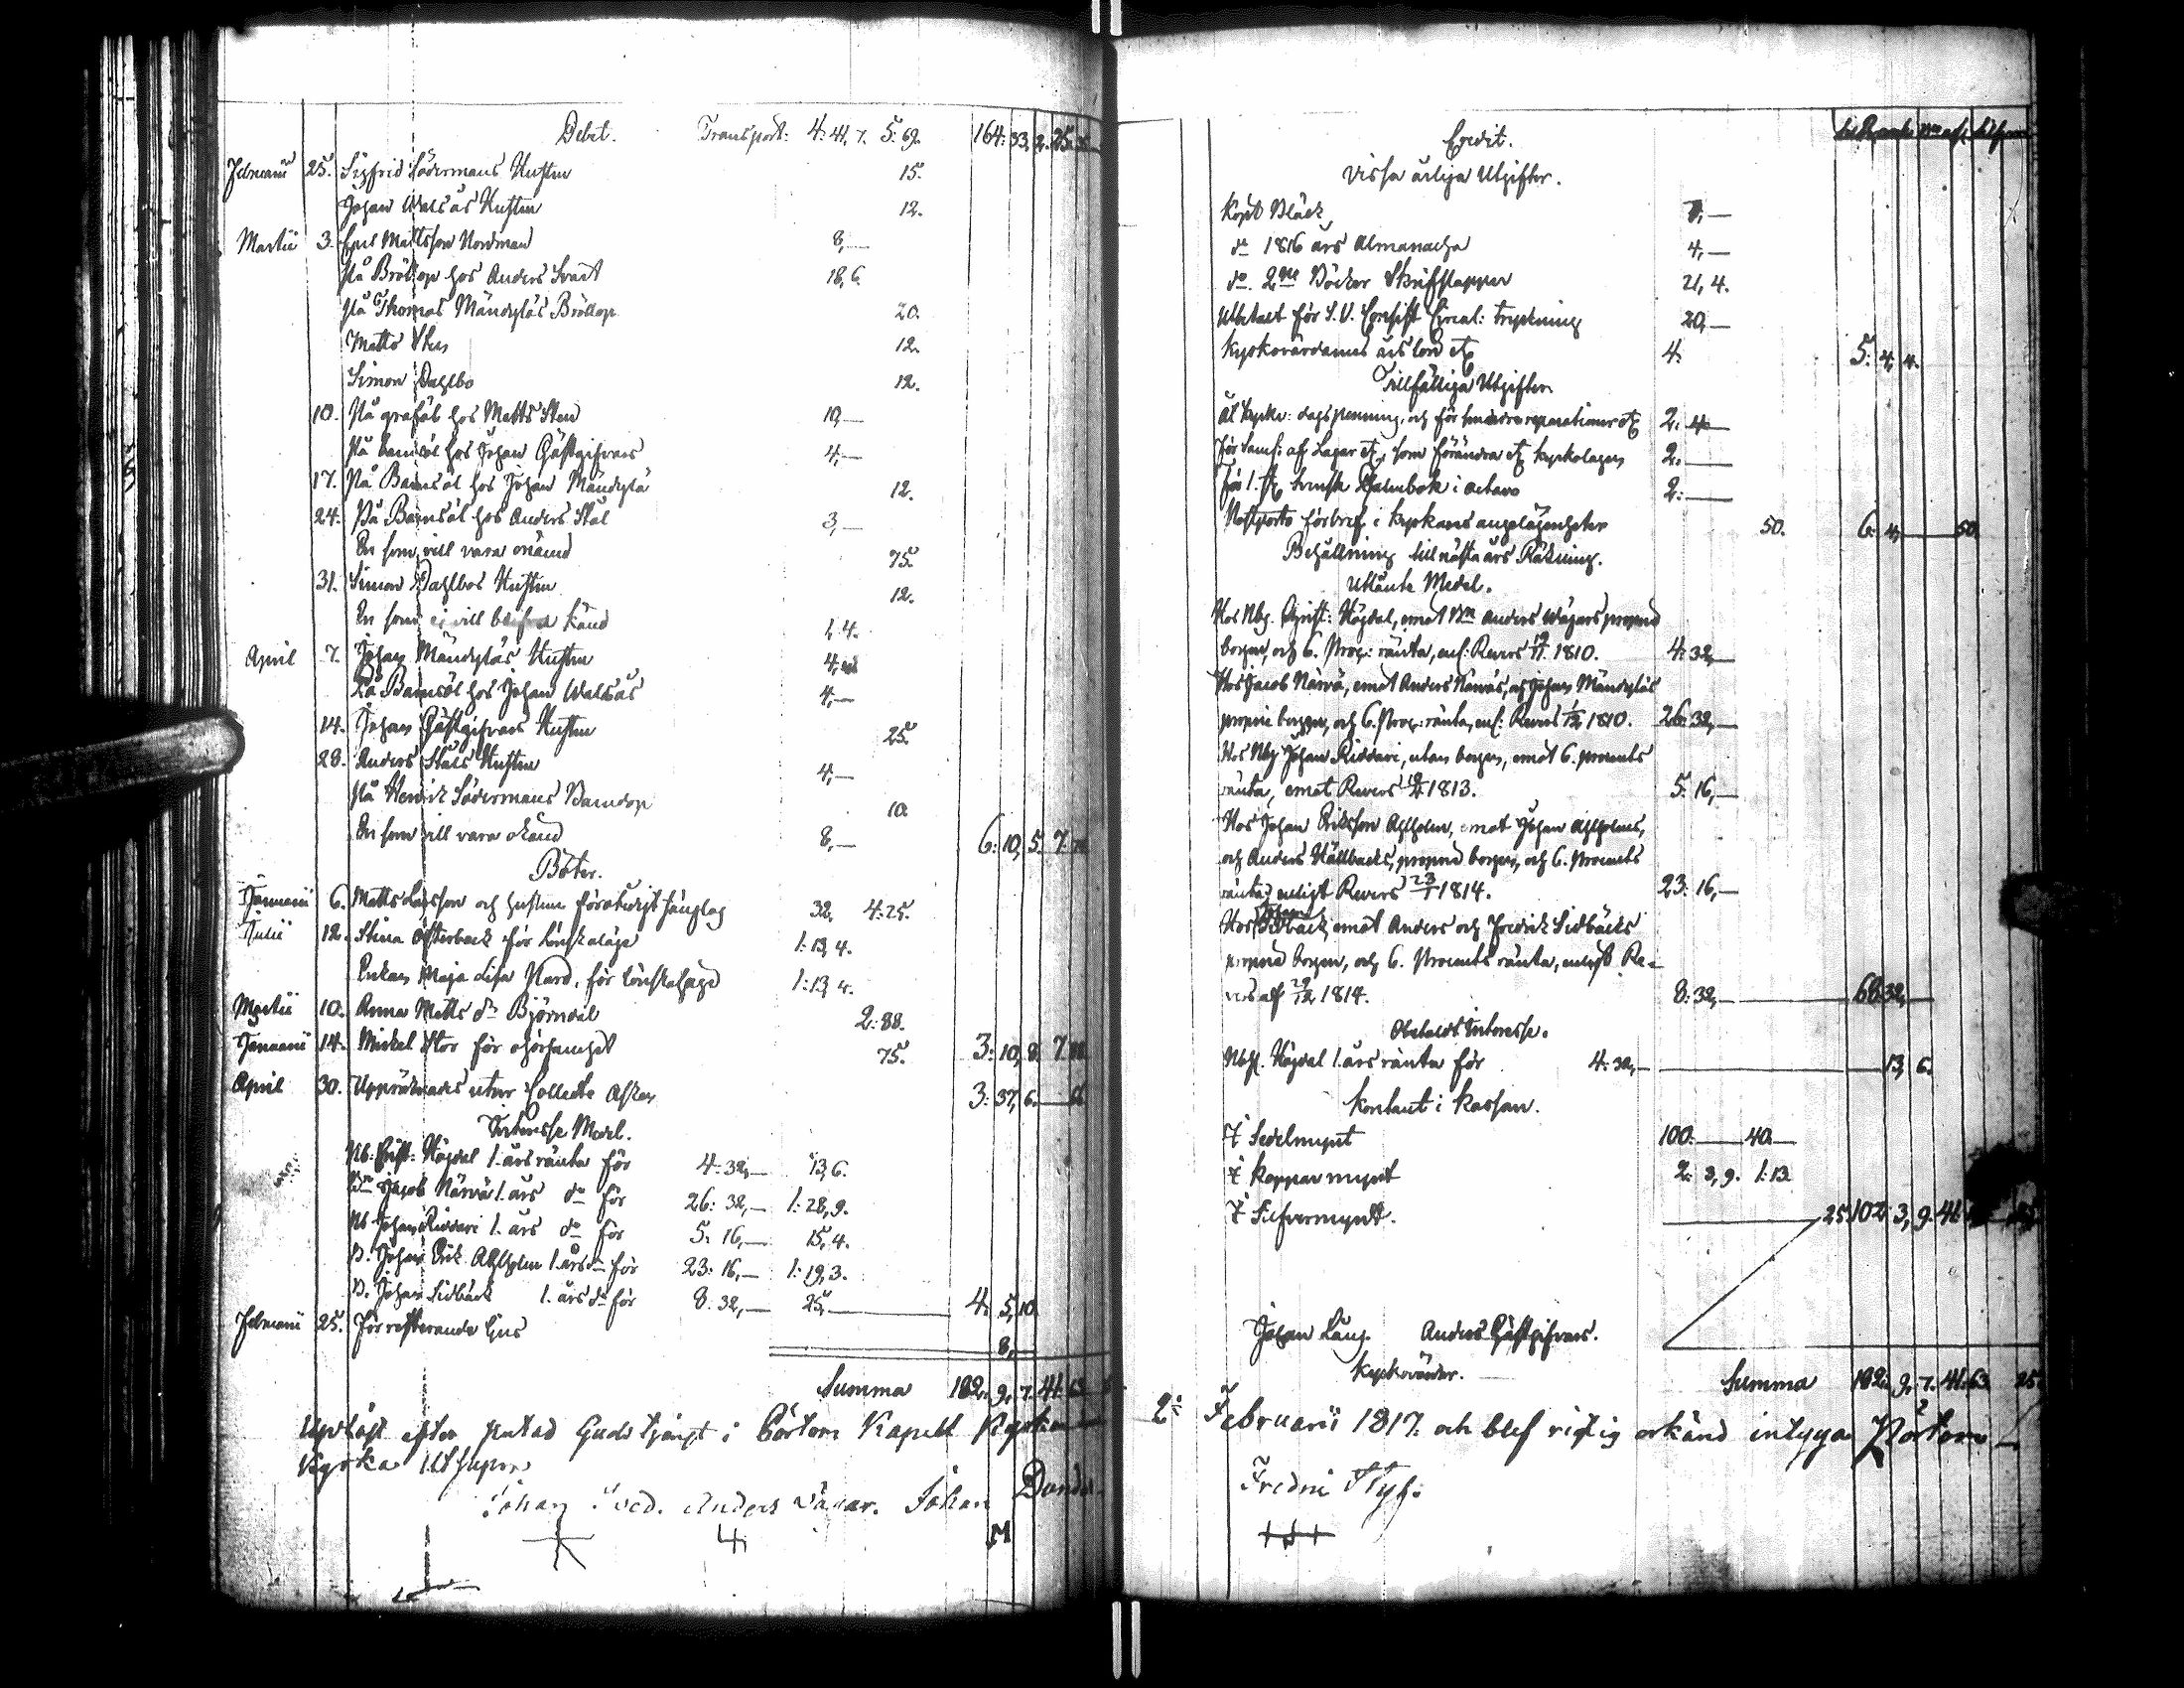 Debet. Transport: 4: 41, 7. 5: 69. 164: 33, 2. 25.
Februarii 25. Sigfrid Södermans Hustru 15.
Johan Walsås Hustru 12.
Martii 3. Eric Mattsson Nordman 8,—
På Bröllop hos Anders Svart 18, 6.
På Thomas Mändyläs Bröllop 20.
Matts 12.
Simon Dahlbo 12.
10. På grafäl hos Matts Sten 10,—
På barnsöl hos Johan Gästgifvars 4,—
17. På Barnsöl hos Johan Mändylä 12.
24. På Barnsöl hos Anders Stål 3,—
En som vill vara onämd 75.
31. Simon Dahlbos Hustru 12.
En som ej vill blifva känd 1, 4.
April 7. Johan Mändyläs Hustru 4,
På Barnsöl hos Johan Walsås 4,—
14. Johan Gästgifvars Hustru 25.
28. Anders Ståls Hustru 4,—
På Henric Södermans Barndop 10.
En som vill vara okänd 8,— 6: 10, 5. 7.
Böter.
Januarii 6. Matts Larsson och hustru för otidigt sänglag 32, 4: 25.
Julii 12. Stina Österback för Lönskaläge 1: 13, 4.
Enkan Maja Lisa Nard, för lönskaläge 1: 13, 4.
Martii 10. Anna Matts dr Björndal 2: 88.
Januarii 14. Mickel Stor för ohörsamhet 75. 3: 10, 8. 7.
April 30. Uppräknades utur Collecte Asken 3: 37, 6.
Interesse Medel.
Nb. Christ: Högdal 1. års ränta för 4: 32,— 13, 6.
Bn Jacob Närvä 1. års do för 26: 32,— 1: 28, 9.
Nb Johan Riddari 1. års do för 5: 16,— 15, 4.
B. Johan Erik Ahlholm 1. års do för 23: 16,— 1: 19, 3.
B. Johan Sidbäck 1. års do för 8: 32,— 25,— 4: 5, 10.
Februarii 25. För resterande ljus 8,
Summa 182: 9, 7. 41: 63
Upläst efter slutad Gudstjenst i Pörtom Kapell
Kyrka
Johan Sved. Anders Wägar. Johan
M
Credit.
Vissa årliga Utgifter.
Köpt Bläck 7,—
do 1816 års Almanacha 4,—
do 2ne Böcker Skrifpapper 21, 4.
Utbetalt för S. V. Consist Circul: tryckning 20,—
Kyrkovärdarnes års lön 4: 5: 4, 4.
Tillfälliga Utgifter.
dagspenning, och för smärre reparationer 2: 4
2:—
För 1. st. Svensk Psalmbok i octavo 2:—
Postporto för bref i kyrkans angelägenheter 50. 6: 4,— 50.
Behållning till nästa års Räkning.
Utlånte Medel.
Hos Nbg. Christ: Högdal, emot Bn Anders Wägars proprie
borgen, och 6. Proc: ränta, enl: Revers 1810. 4: 32,—
Hos Jacob Närvä, emot Anders Närväs, och Johan Mändyläs
proprie borgen, och 6. Proc: ränta, enl: Revers 1/12 1810. 26: 32,—
Hos Nbg Johan Riddari, utan borgen, emot 6. procents
ränta, emot Revers 1813. 5: 16,—
Hos Johan Eriksson Ahlholm, emot Johan Ahlholms,
och Anders Hällbacks, proprie borgen, och 6. Procents
ränta, enligt Revers 23/1 1814. 23: 16,—
Hos Johan Sidbäck, emot Anders och Fredrik Sidbäcks
proprie borgen, och 6. Procents ränta, enligt Re-
vers af 29/12 1814. 8: 32,— 68: 32,—
Obetaldt Interesse.
Nbg. Högdal 1. års ränta för 4: 32,— 13, 6.
Kontant i kassan.
I Sedelmynt 100:— 40.—
I kopparmynt 2: 3, 9. 1: 13.
I Silfvermynt. 25. 102: 3, 9. 41:
Johan Lång. Anders Gästgifvars.
Kyrkovärdar.
Summa 182: 9, 7. 41: 63. 25.
2: Februarii 1817. och blef riktig erkänd intyga Pörtom